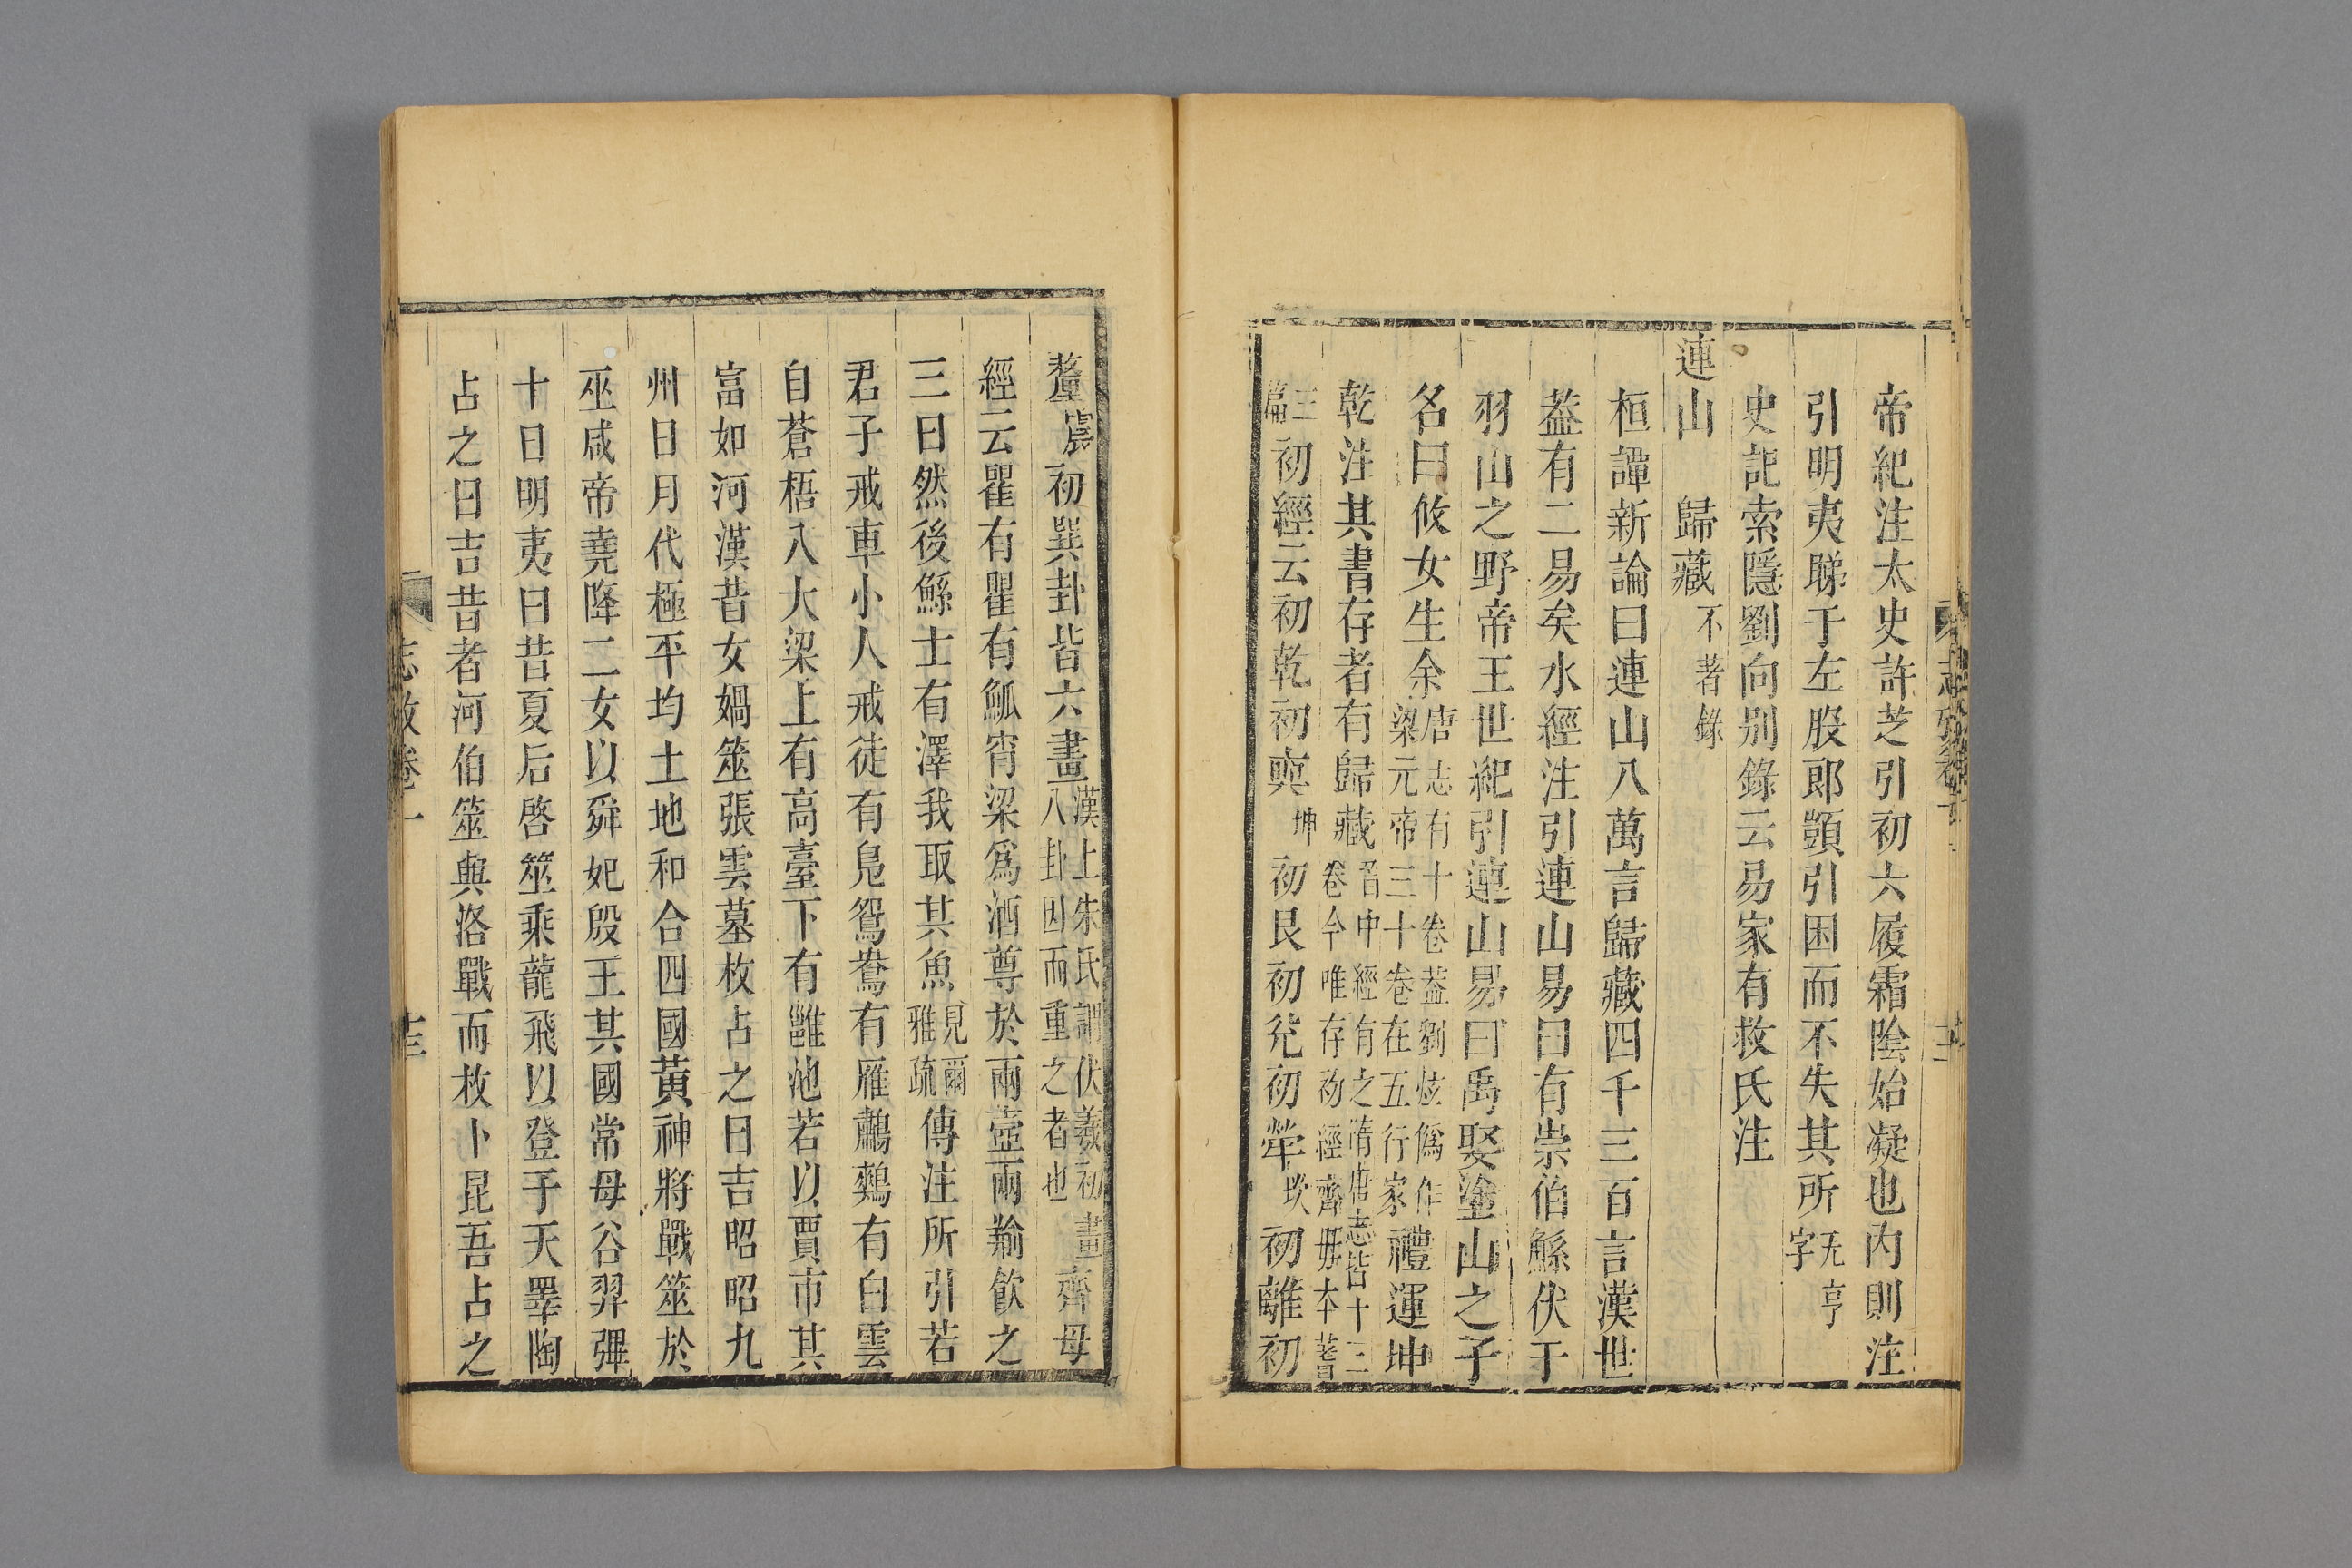 帝紀注太史許芝引初六履霜陰始凝也內則注
引明夷睇于左股郎顗引困而不失其所无亨字
史記索隱劉向別錄云易家有救氏注
連山　歸藏不著錄
桓譚新論曰連山八萬言歸藏四千三百言漢世
蓋有二易矣水經注引連山易曰有崇伯鯀伏于
羽山之野帝王世紀引連山易曰禹娶塗山之子
名曰攸女生余唐志有十卷蓋劉炫僞作梁元帝三十卷在五行家禮運坤
乾注其書存者有歸藏晉中經有之隋唐志皆十三卷今唯存初經齊母本蓍
三篇初經云初乾初奭坤初艮初兊初犖坎初離初
釐震初巽卦皆六畫漢上朱氏謂伏羲初畫八卦因而重之者也齊母
經云瞿有瞿有觚宵梁爲酒尊於兩壺兩羭飲之
三日然後鯀士有澤我取其魚見爾雅疏傳注所引若
君子戒車小人戒徒有鳧鴛鴦有雁鷫鷞有白雲
自蒼梧入大梁上有高臺下有雝池若以賈市其
富如河漢昔女媧筮張雲幕枚占之曰吉昭昭九
州日月代極平均土地和合四國黃神將戰筮於
巫咸帝堯降二女以舜妃殷王其國常母谷羿彃
十日明夷曰昔夏后啓筮乘龍飛以登于天睪陶
占之曰吉昔者河伯筮與洛戰而枚卜昆吾占之
志攷卷一
十三